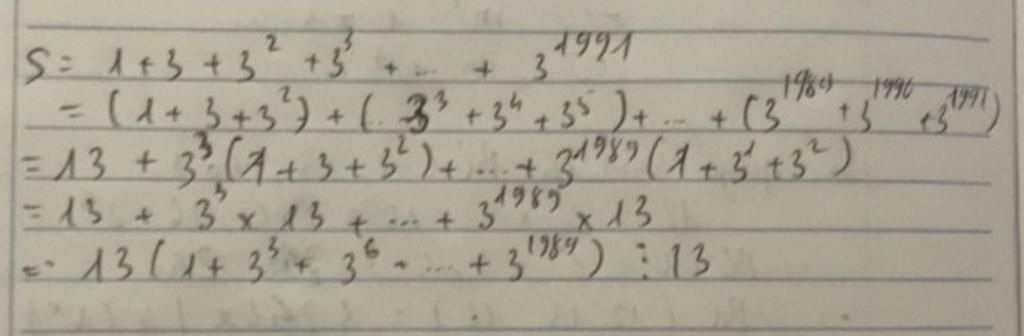 S = 1 + 3 + 3² + 3³ + ... + 3¹⁹⁹¹
= (1 + 3 + 3²) + (3³ + 3⁴ + 3⁵) + ... + (3¹⁹⁸⁹ + 3¹⁹⁹⁰ + 3¹⁹⁹¹)
= 13 + 3³.(1 + 3 + 3²) + ... + 3¹⁹⁸⁹(1 + 3¹ + 3²)
= 13 + 3³ × 13 + ... + 3¹⁹⁸⁹ × 13
= 13(1 + 3³ + 3⁶ + ... + 3¹⁹⁸⁹) ⋮ 13